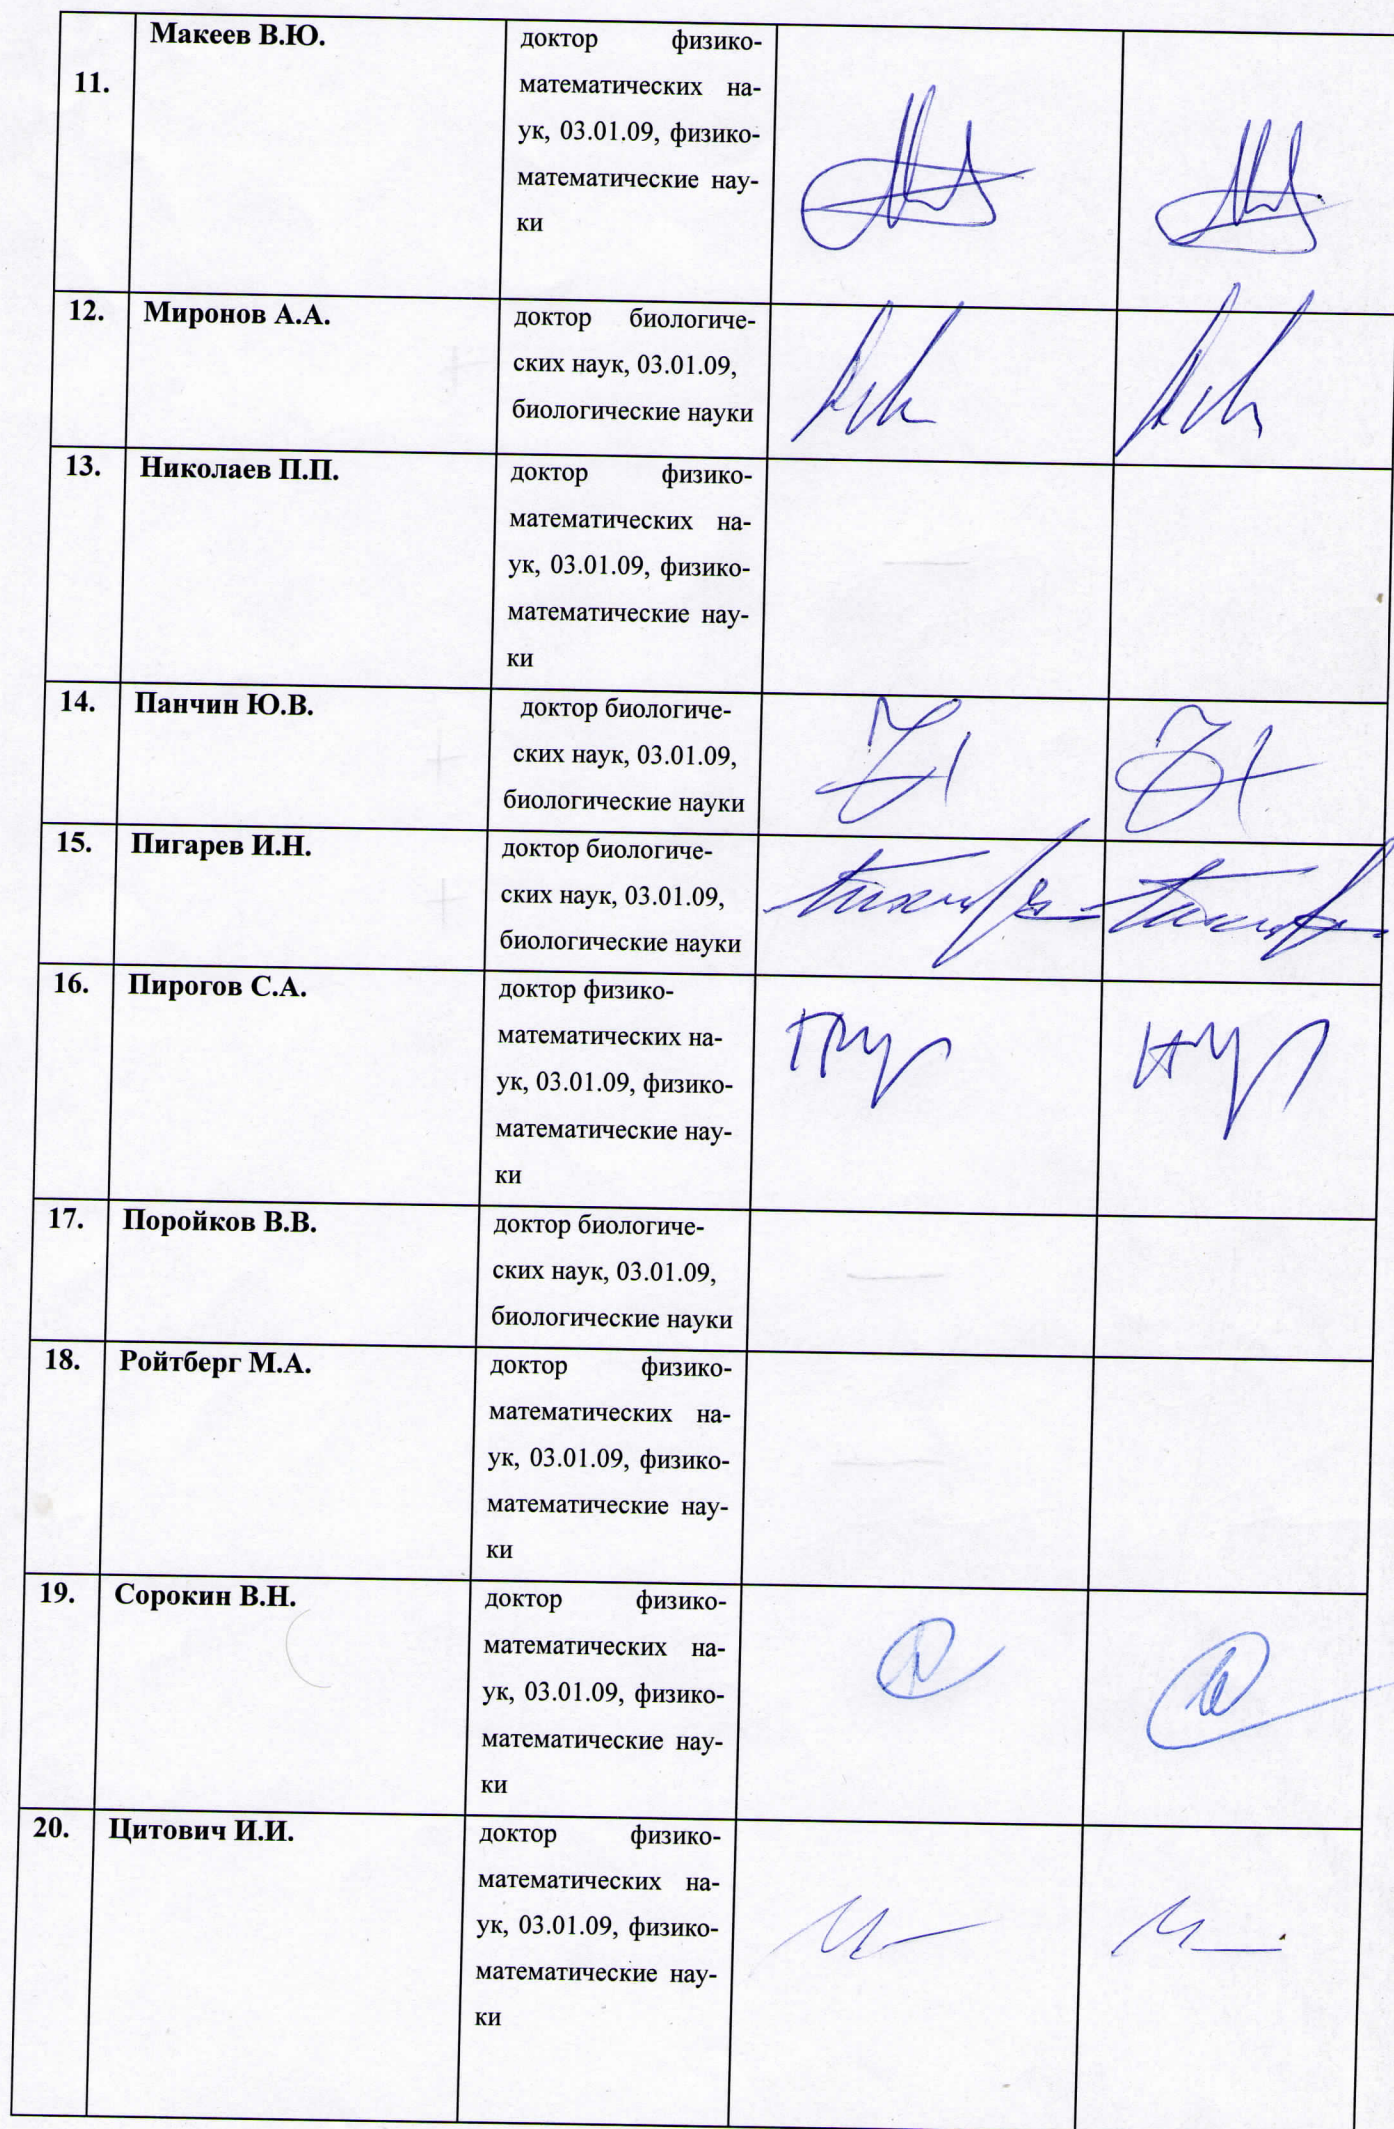 11.
Макеев В.Ю.
доктор физико-
математических на-
ук, 03.01.09, физико-
математические нау-
ки
12.
Миронов А.А.
доктор биологиче-
ских наук, 03.01.09,
биологические науки
13.
Николаев П.П.
доктор физико-
математических на-
ук, 03.01.09, физико-
математические нау-
ки
14.
Панчин Ю.В.
доктор биологиче-
ских наук, 03.01.09,
биологические науки
15.
Пигарев И.Н.
доктор биологиче-
ских наук, 03.01.09,
биологические науки
16.
Пирогов С.А.
доктор физико-
математических на-
ук, 03.01.09, физико-
математические нау-
ки
17.
Поройков В.В.
доктор биологиче-
ских наук, 03.01.09,
биологические науки
18.
Ройтберг М.А.
доктор физико-
математических на-
ук, 03.01.09, физико-
математические нау-
ки
19.
Сорокин В.Н.
доктор физико-
математических на-
ук, 03.01.09, физико-
математические нау-
ки
20.
Цитович И.И.
доктор физико-
математических на-
ук, 03.01.09, физико-
математические нау-
ки